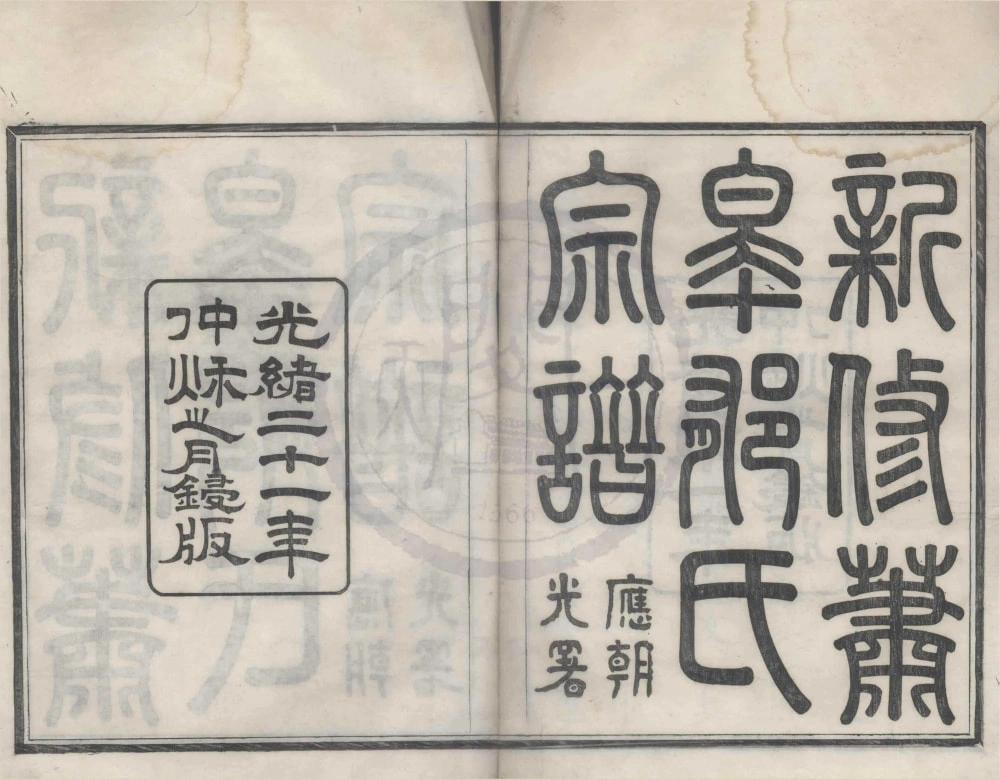 新修蕭
皋郤氏
宗譜
應朝
光署
光緒三十一年
仲秌之月鋟版